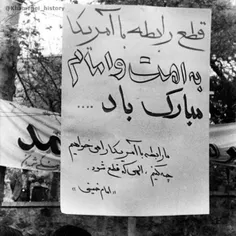 @Khamenei_history
قطع رابطه با آمریکا
به امت و امام
مبارک باد ....
ما رابطه با آمریکا را می خواهیم
چه کنیم ، الهی که قطع شود ..
«امام خمینی»